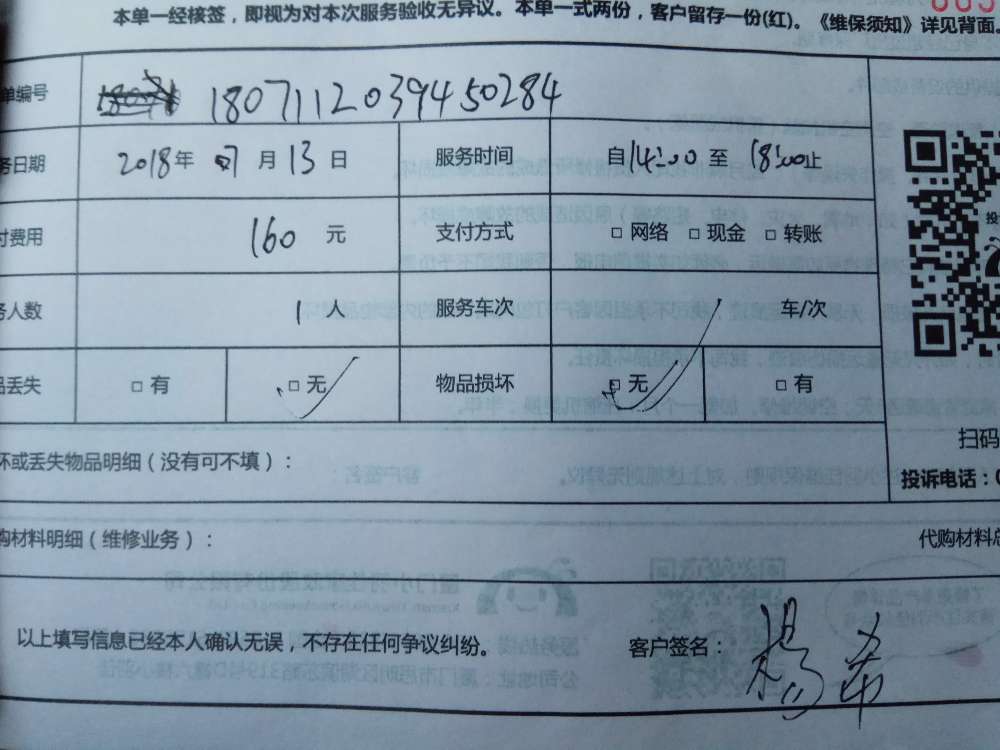 本单一经核签，即视为对本次服务验收无异议。本单一式两份，客户留存一份(红)。《维保须知》详见背面。
单编号 180711120394450284
务日期 2018年 07月 13日 服务时间 自14:00至 18:00止
付费用 160 元 支付方式 □ 网络 □ 现金 □ 转账
务人数 1 人 服务车次 / 车/次
品丢失 □ 有 □ 无 物品损坏 □ 无 □ 有
扫码
坏或丢失物品明细（没有可不填）：
投诉电话：
购材料明细（维修业务）： 代购材料总
以上填写信息已经本人确认无误，不存在任何争议纠纷。 客户签名：杨希